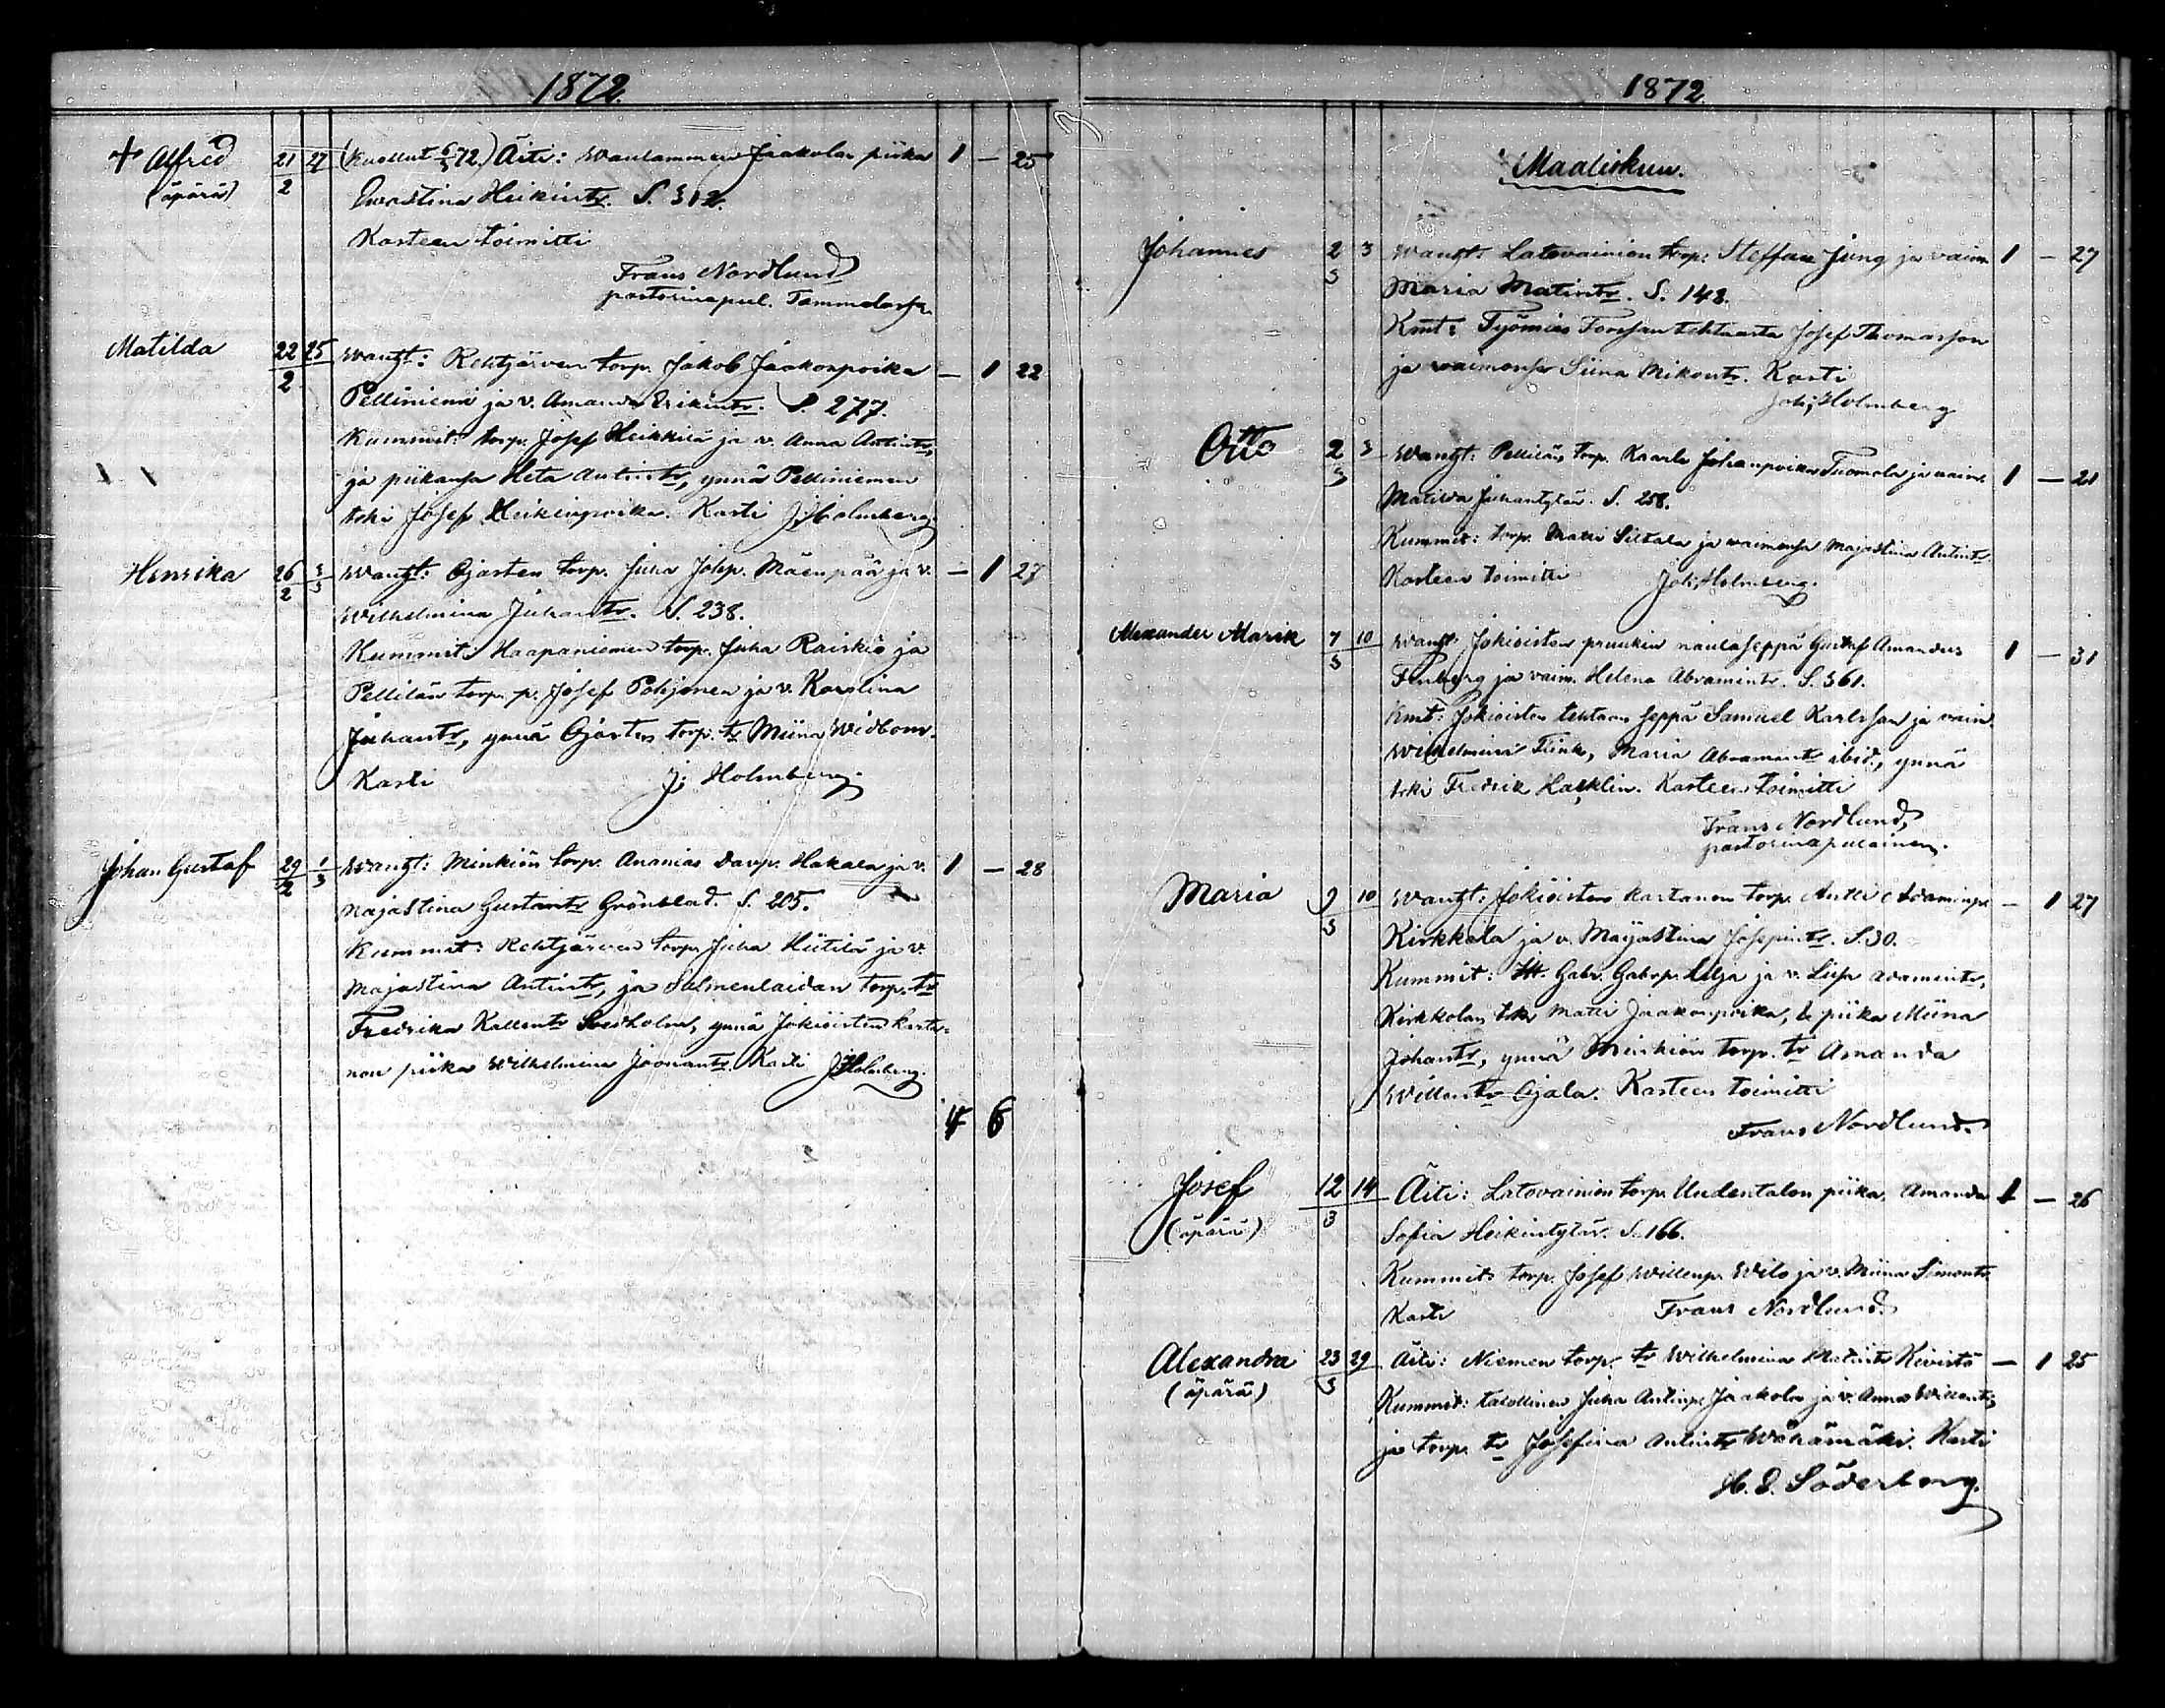 1872.
+ Alfred 21/2 27 (Kuollut 6/3 72.) Äiti: Waulammin Jaakolan piika 1 — 25
(äpärä) Eerstina Heikintr. S. 312.
Kasteen toimitti
Frans Nordlund
pastorinapul. Tammelassa.
Matilda 22/2 25 Wanht: Rehtjärven torp. Jakob Jaakonpoika — 1 22
Pelliniemi ja v. Amanda Erikintr. S. 277.
Kummit: torp. Josef Heikkilä ja v. Anna Antintr,
ja piikansa Heta Antintr, ynnä Pelliniemen
trki Josef Heikinpoika. Kasti J. Holmberg
Henrika 26/2 3/3 Wanht: Ojasten torp. Juha Johp. Mäenpää ja v. — 1 27
Wilhelmina Juhantr. S. 238.
Kummit: Haapaniemen torp. Juha Raiskio ja
Pellilän torp. p. Josef Pohjonen ja v. Karolina
Juhantr, ynnä Ojasten torp. tr Miina Widbom.
Kasti J. Holmberg.
Johan Gustaf 29/2 1/3 Wanht: Minkiön torp. Ananias Davp. Hakala ja v. 1 — 28
Majastina Gustavtr Grönblad. S. 205.
Kummit: Rehtjärven torp. Juha Hiitilä ja v.
Majastina Antintr, ja Salmenlaidan torp. tr
Fredrika Kallentr Sederholm, ynnä Jokioisten karta-
non piika Wilhelmina Joonantr. Kasti J. Holmberg.
4 6
1872.
Maaliskuu.
Johannes 2/3 3 Wanht: Latovainion torp: Steffan Jung ja vaim. 1 — 27
Maria Matintr. S. 148.
Kmt: Työmies Forssan tehtaasta Josef Thomasson
ja vaimonsa Siina Mikontr. Kasti
Joh. Holmberg
Otto 2/3 3 Wanht: Pellilän torp. Kaarle Johanpoika Tuomola ja vaim. 1 — 21
Matilda Juhantytär. S. 258.
Kummit: torp. Matti Siltala ja vaimonsa Majastina Antintr.
Kasteen toimitti Joh. Holmberg.
Alexander Marik 7/3 10 Wanht: Jokioisten pruukin naulaseppä Gustaf Amandus 1 — 31
Finberg ja vaim. Helena Abramintr. S. 361.
Kmt: Jokioisten tehtaan seppä Samuel Karlsson ja vaim.
Wilhelmina Fiink, Maria Abramintr ibid, ynnä
trki Fredrik Hacklin. Kasteen toimitti
Frans Nordlund,
pastorinapulainen.
Maria 9/3 10 Wanht: Jokioisten kartanon torp. Antti Adaminp. — 1 27
Kirkkala ja v. Majastina Josepintr. S. 30.
Kummit: Itt. Gabr. Gabrp. Lilja ja v. Liisa Adamintr,
Kirkkalan trki Matti Jaakonpoika, & piika Miina
Johantr, ynnä Minkiön torp. tr Amanda
Willentr Ojala. Kasteen toimitti
Frans Nordlund.
Josef 12/3 14 Äiti: Latovainion torp. Uudentalon piika, Amanda 1 — 26
(äpärä) Sofia Heikintytär. S. 166.
Kummit: torp. Josef Willenp. Wilo ja v. Miina Simontr
Kasti Frans Nordlund.
Alexandra 23/3 29 Äiti: Niemen torp. tr Wilhelmina Matintr Kivistö — 1 25
(äpärä) Kummit: talollinen Juha Antinp. Jaakola ja v. Anna Willentr,
ja torp. tr Josefina Antintr Wähämäki. Kasti
H. E. Söderborg.